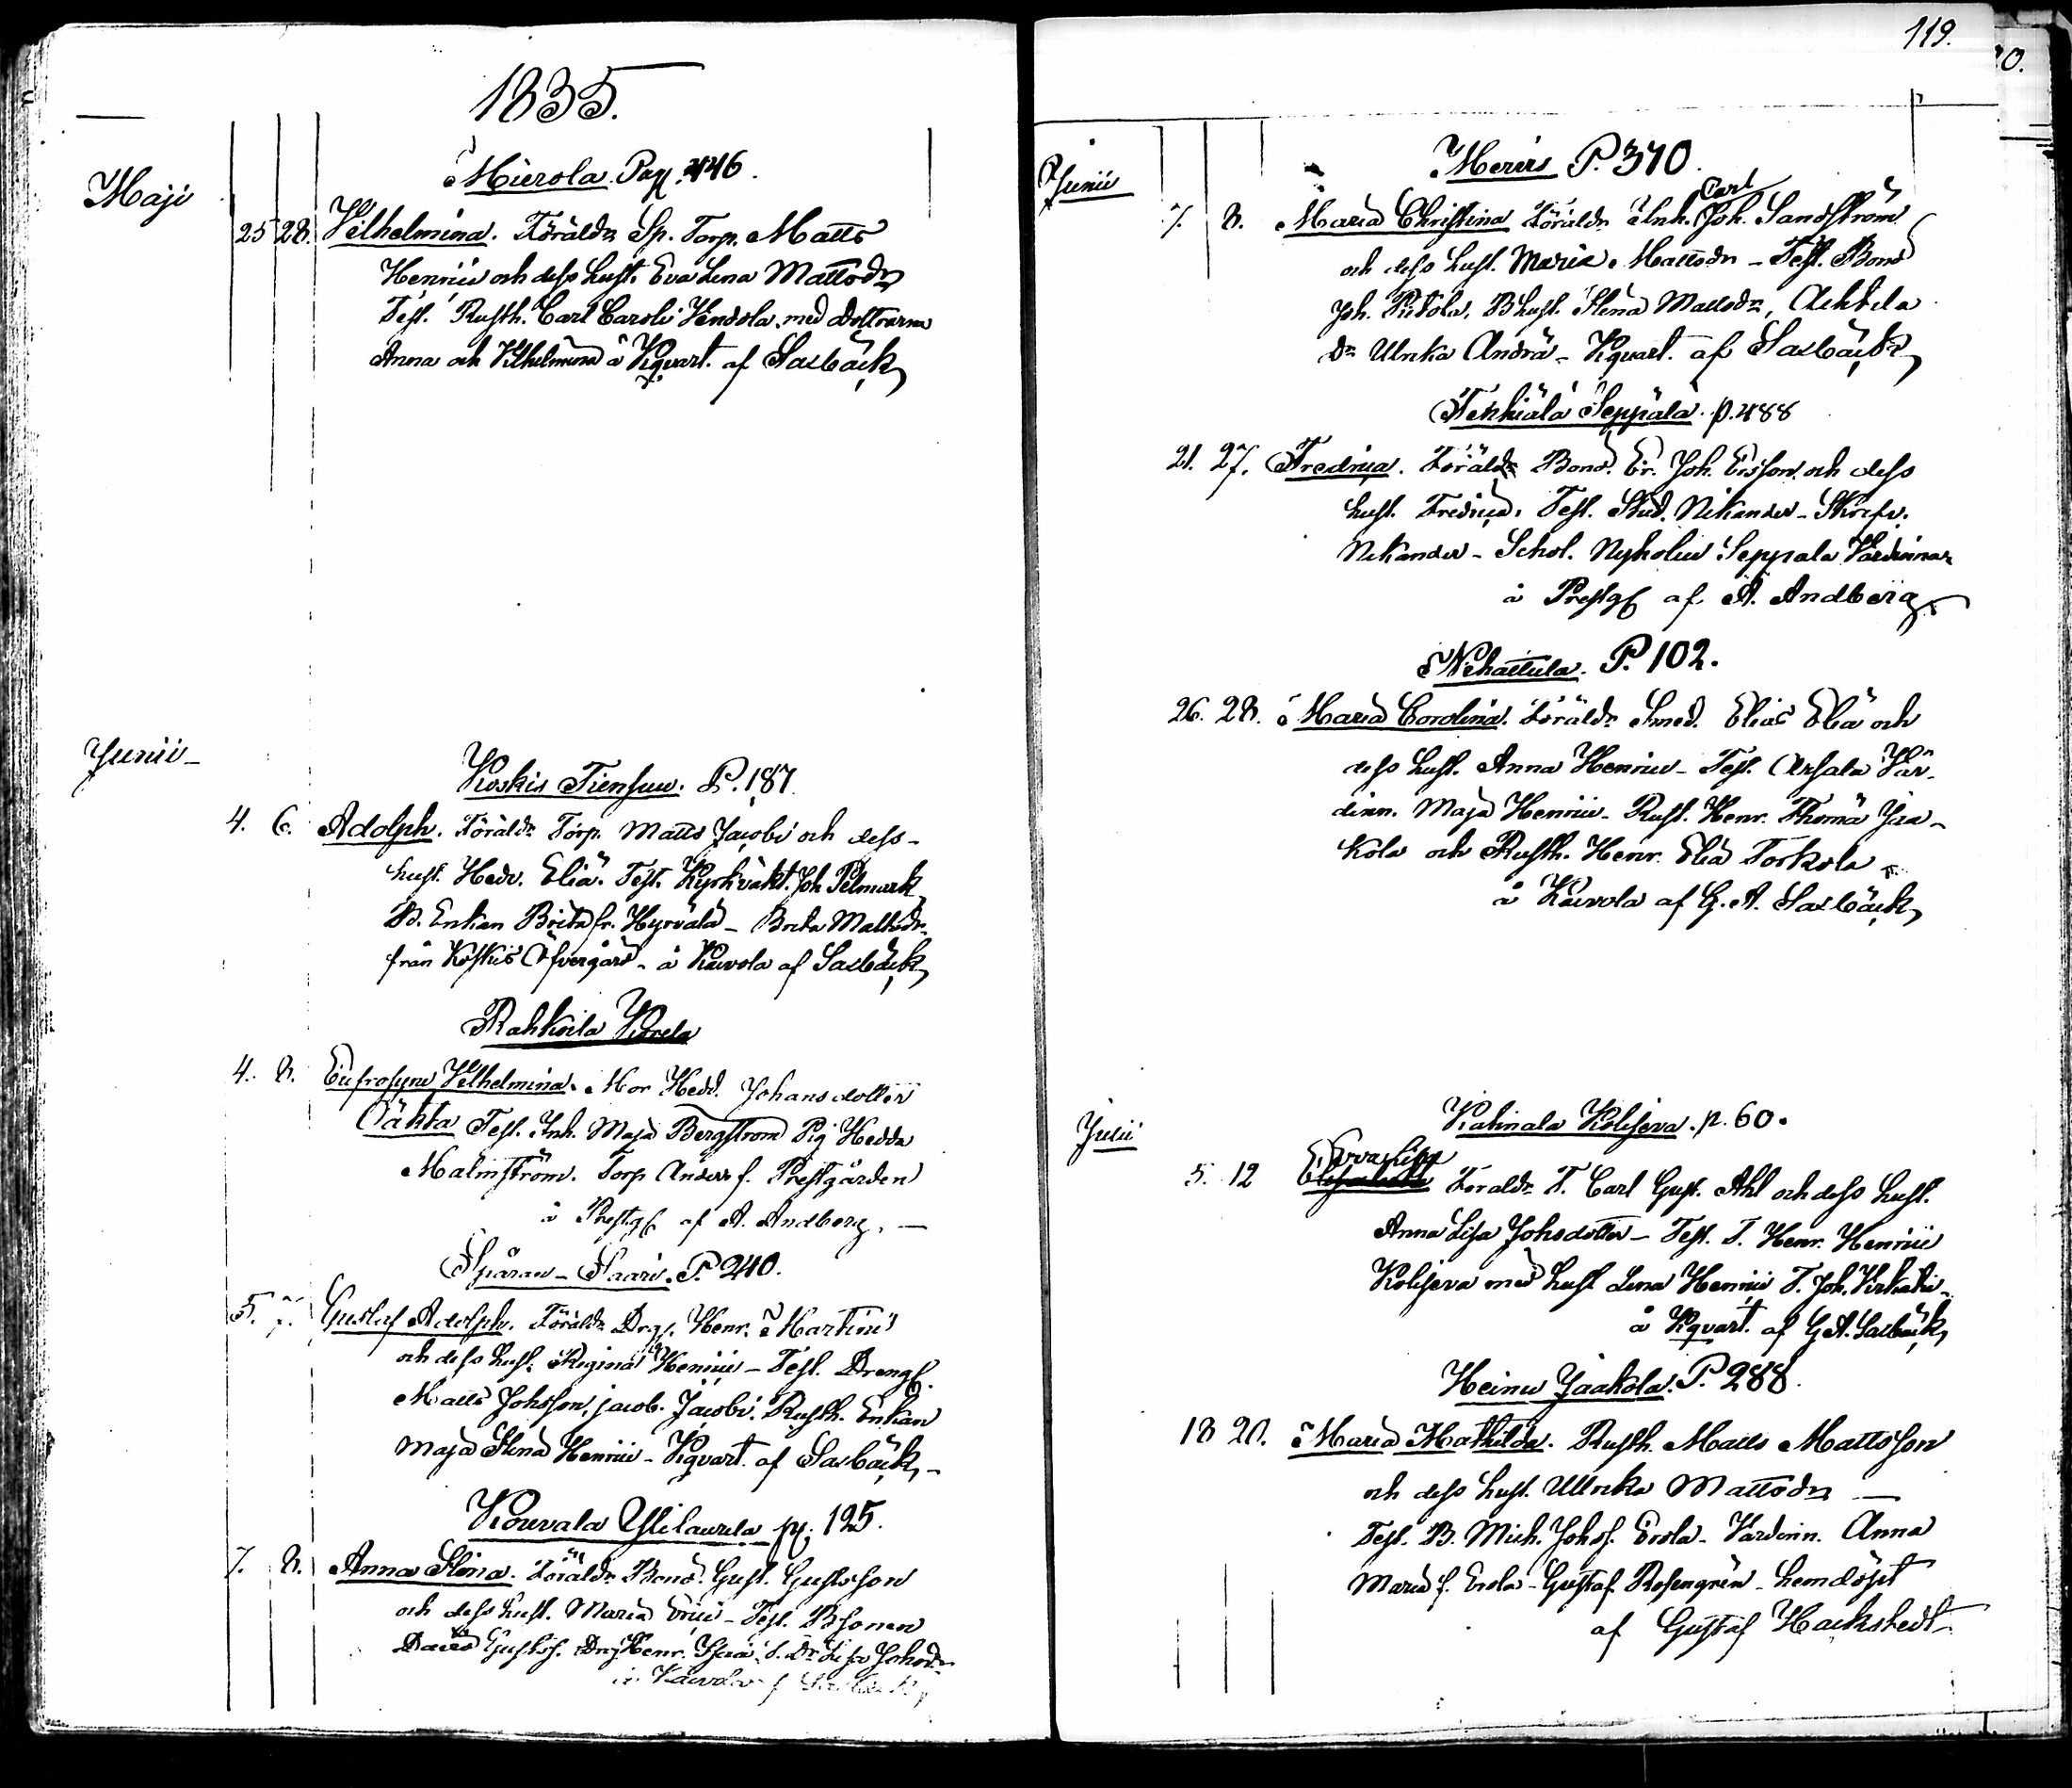 1835.
Maji
Mierola. Pag. 446.
25 28. Vilhelmina. Föräldr Sp. Torp. Matts
Henrici och dess hust. Eva Lena Mattsdr
Test. Rusth. Carl Caroli Vendola med dottrarna
Anna och Vilhelmina å Kqvart. af Saxbäck
Junii
Koskis Tiensuu. P. 187
4. 6. Adolph. Föräldr Torp. Matts Jacobi och dess
hust. Hedv. Eliæ. Test. Kyrkväkt. Joh Pelmark
B. Enkan Brita fr. Hyrvälä - Brita Mattsdr
från Koskis Öfvergård - å Kaivola af Saxbäck
Rahkoila Karela
4. 8. Eufrosyne Vilhelmina. Mor Hedd. Johansdotter
Oäkta Test. Inh. Maja Bergström Pig Hedda
Malmström. Torp Anders f. Prestgården
å Prestg af A. Andberg. —
Spåran - Saari. P. 240.
5. 7. Gustaf Adolph. Föräldr Drg. Henr. Martini
och dess hust. Regina Henrici - Test. Dreng.
Matts Johsson, jacob. Jacobi. Rusth. Enkan
Maja Stina Henrici - Kqvart. af Saxbäck, -
Kouvala Ylilaurila pg. 125.
7. 8. Anna Stina. Föräldr Bond. Gust. Gustsson
och dess hust. Maria Erici - Test. Bsonen
David Gustss. Drg Henr. Lisa Johsdr
å Kaivola af Saxbäck
119.
Junii
Mervis P. 370
7. 8. Maria Christina Föräldr Inh. Carl Joh. Sandström
och dess hust. Maria Mattsdr - Test. Bond
Joh. Pietola, Bhust. Stina Mattsdr, Achtela
Dr Ulrika Andræ - Kqvart. af Saxbäck
Tenhiälä Seppälä. p. 488
21. 27. Fredrica. Föräldr Bond. Er. Joh. Ersson och dess
hust. Fredrica. Test. Stud. Nikander - Skrifv.
Nikander - Schol. Nyholm Seppala Värdinnan
å Prestg af A. Andberg
Nihattula. P. 102.
26. 28. Maria Carolina. Föräldr Smed. Elias Eliæ och
dess hust. Anna Henrici - Test. Uksala Vär-
dinn. Maja Henrici - Rust. Henr. Thomæ Jaa-
kola och Rusth. Henr. Eliæ Torkola
å Kaivola af G. A. Saxbäck
Julii
Katinala Kolijeva. p. 60.
5. 12 Eva Lisa Föräldr T. Carl Gust. Ahl och dess hust.
Anna Lisa Johsdotter - Test. T. Henr. Henrici
Kolijeva med hust Lena Henrici T. Joh. Virkatie
å Kqvart. af GA. Saxbäck
Heinu Jaakola. P. 288.
18 20. Maria Mathilda. Rusth. Matts Mattsson
och dess hust. Ullrika Mattsdr —
Test. B. Mich. Johss. Erola - Värdinn. Anna
Maria f. Erola - Gustaf Rosengrén - hemdöpt
af Gustaf Hackstedt